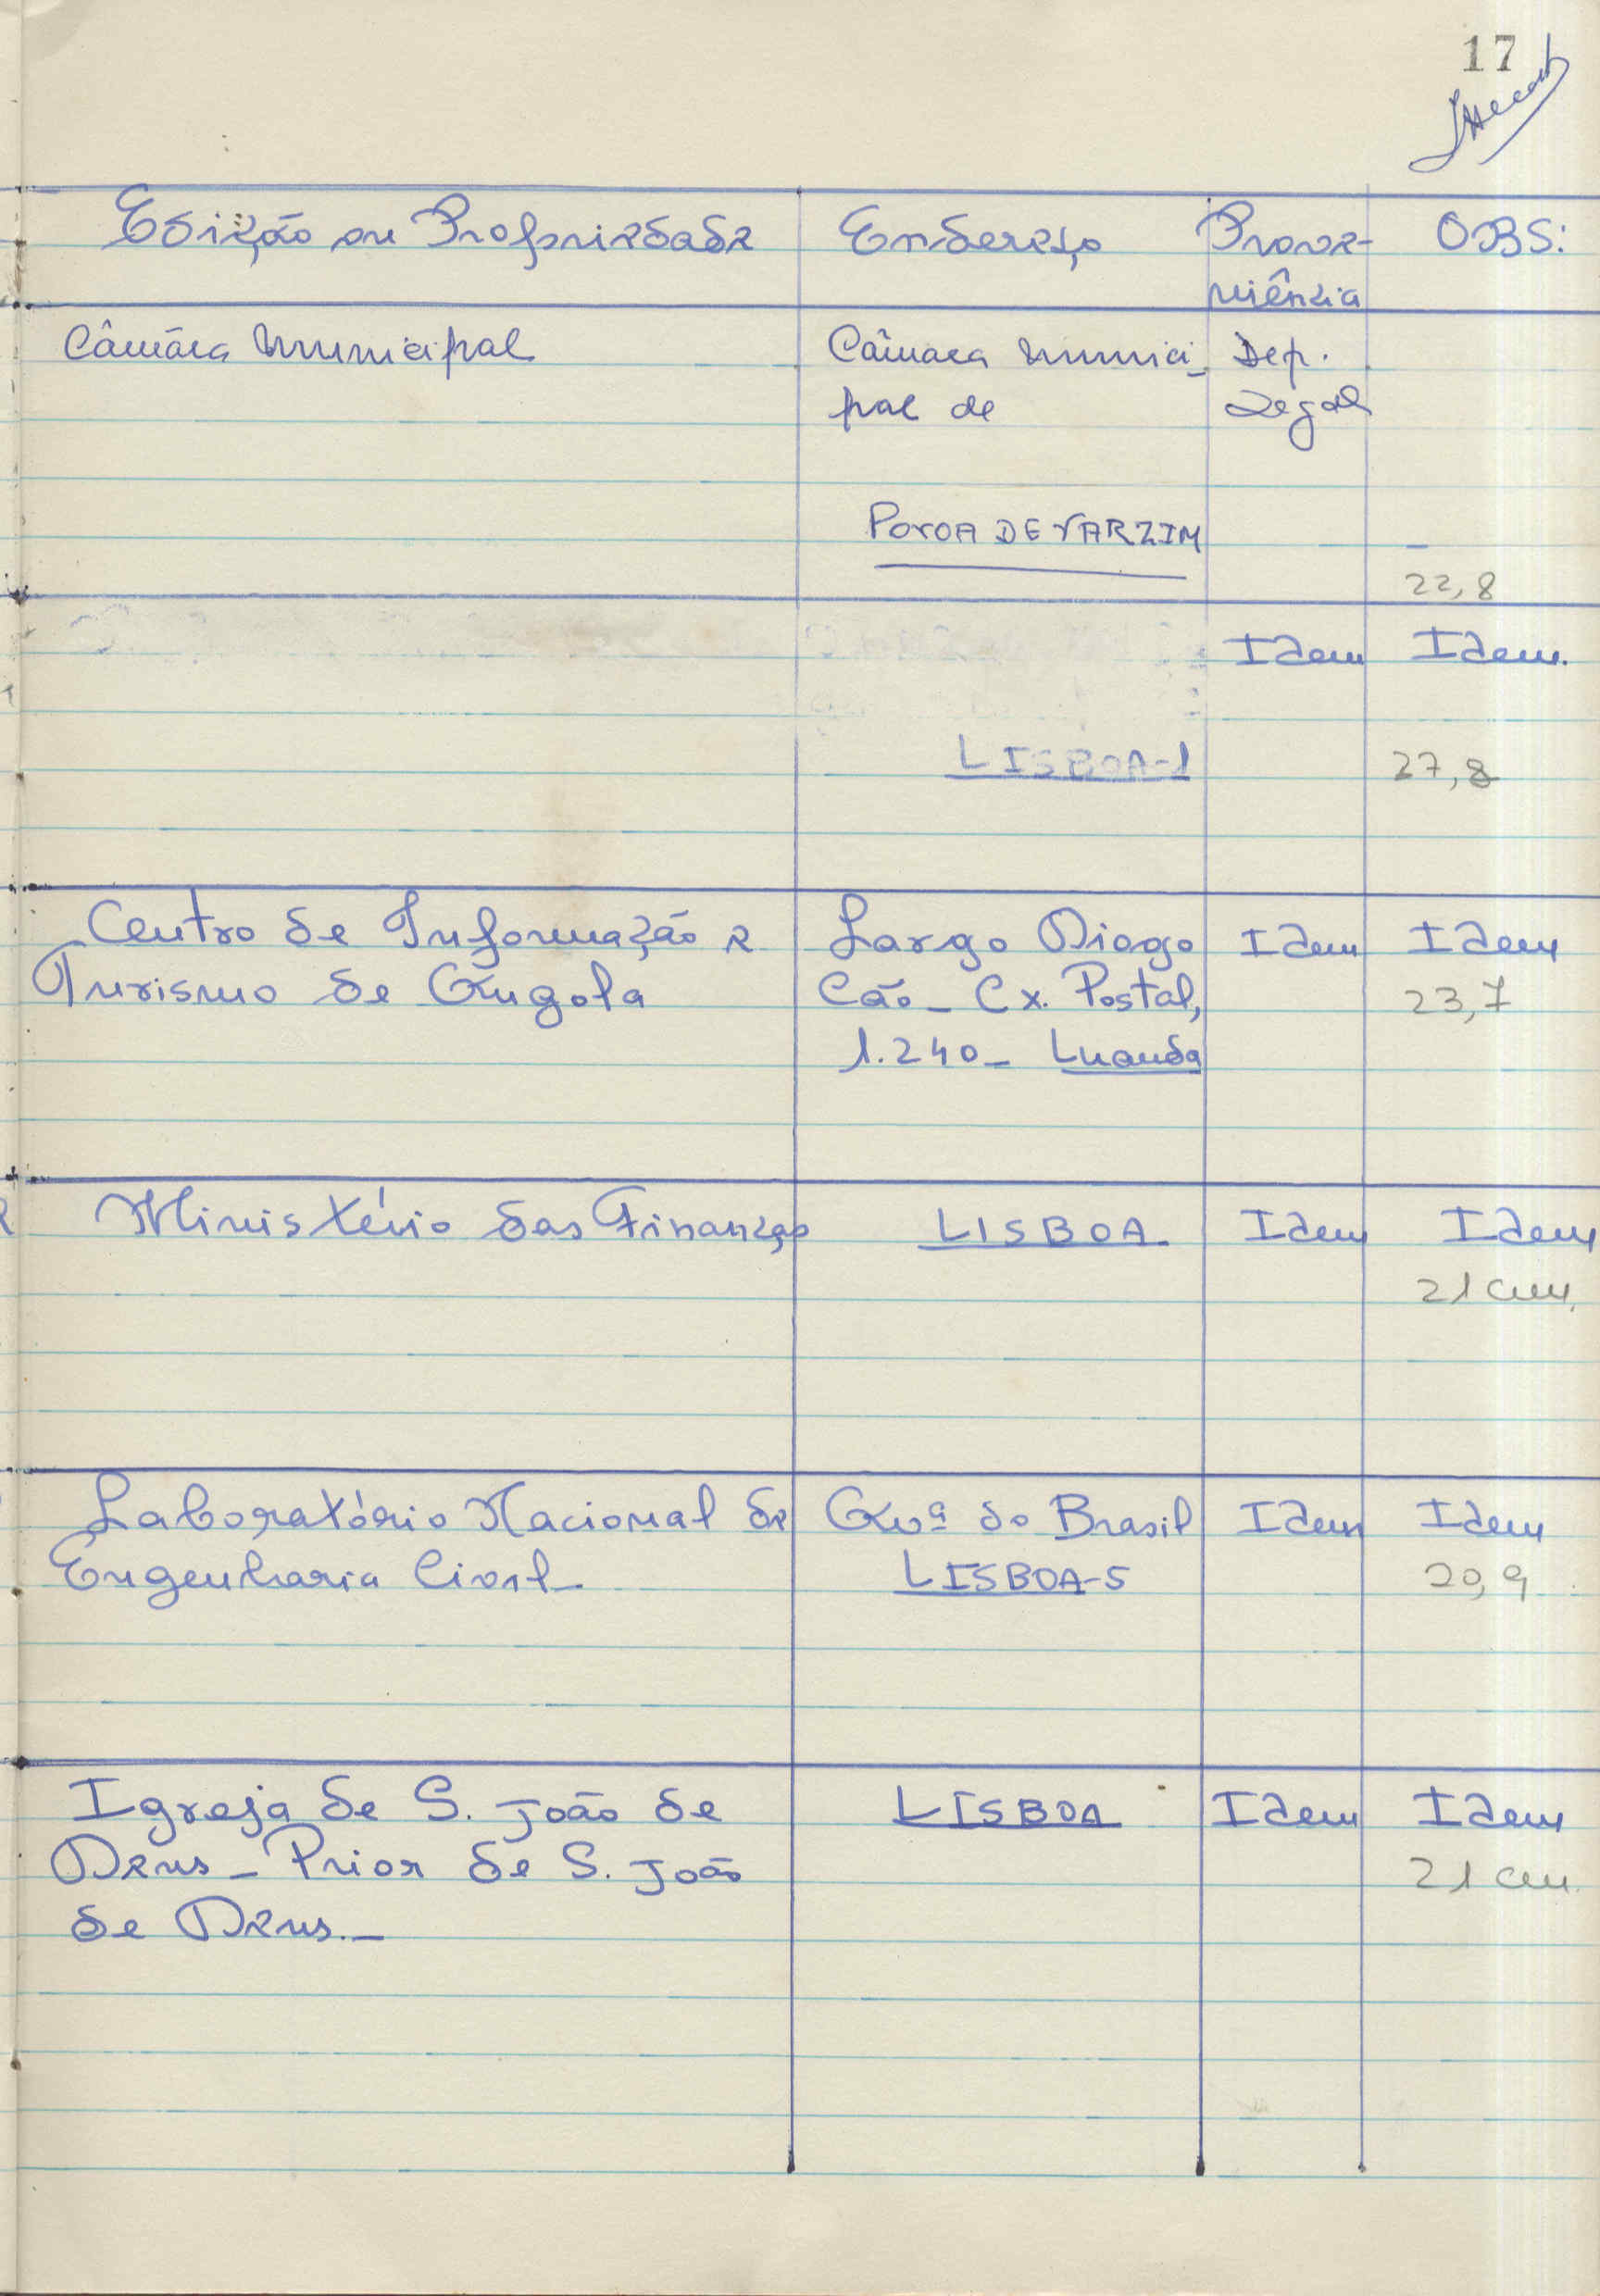 17
Edição ou Propriedade Endereço Prove- OBS:
niência
Câmára Municipal Câmara Munici_ Dep.
pal de Legal
POVOA DE VARZIM
22,8
Idem Idem.
LISBOA-1 27,8
Centro de Informação e Largo Diogo Idem Idem
Turismo de Angola Cão_ Cx. Postal, 23,7
1.240_ Luanda
Ministério das Finanças LISBOA. Idem Idem
21 cm.
Laboratório Nacional de Avª do Brasil Idem Idem
Engenharia Civil_ LISBOA-5 20,9
Igreja de S. João de LISBOA Idem Idem
Deus_ Prior de S. João 21 cm.
de Deus._